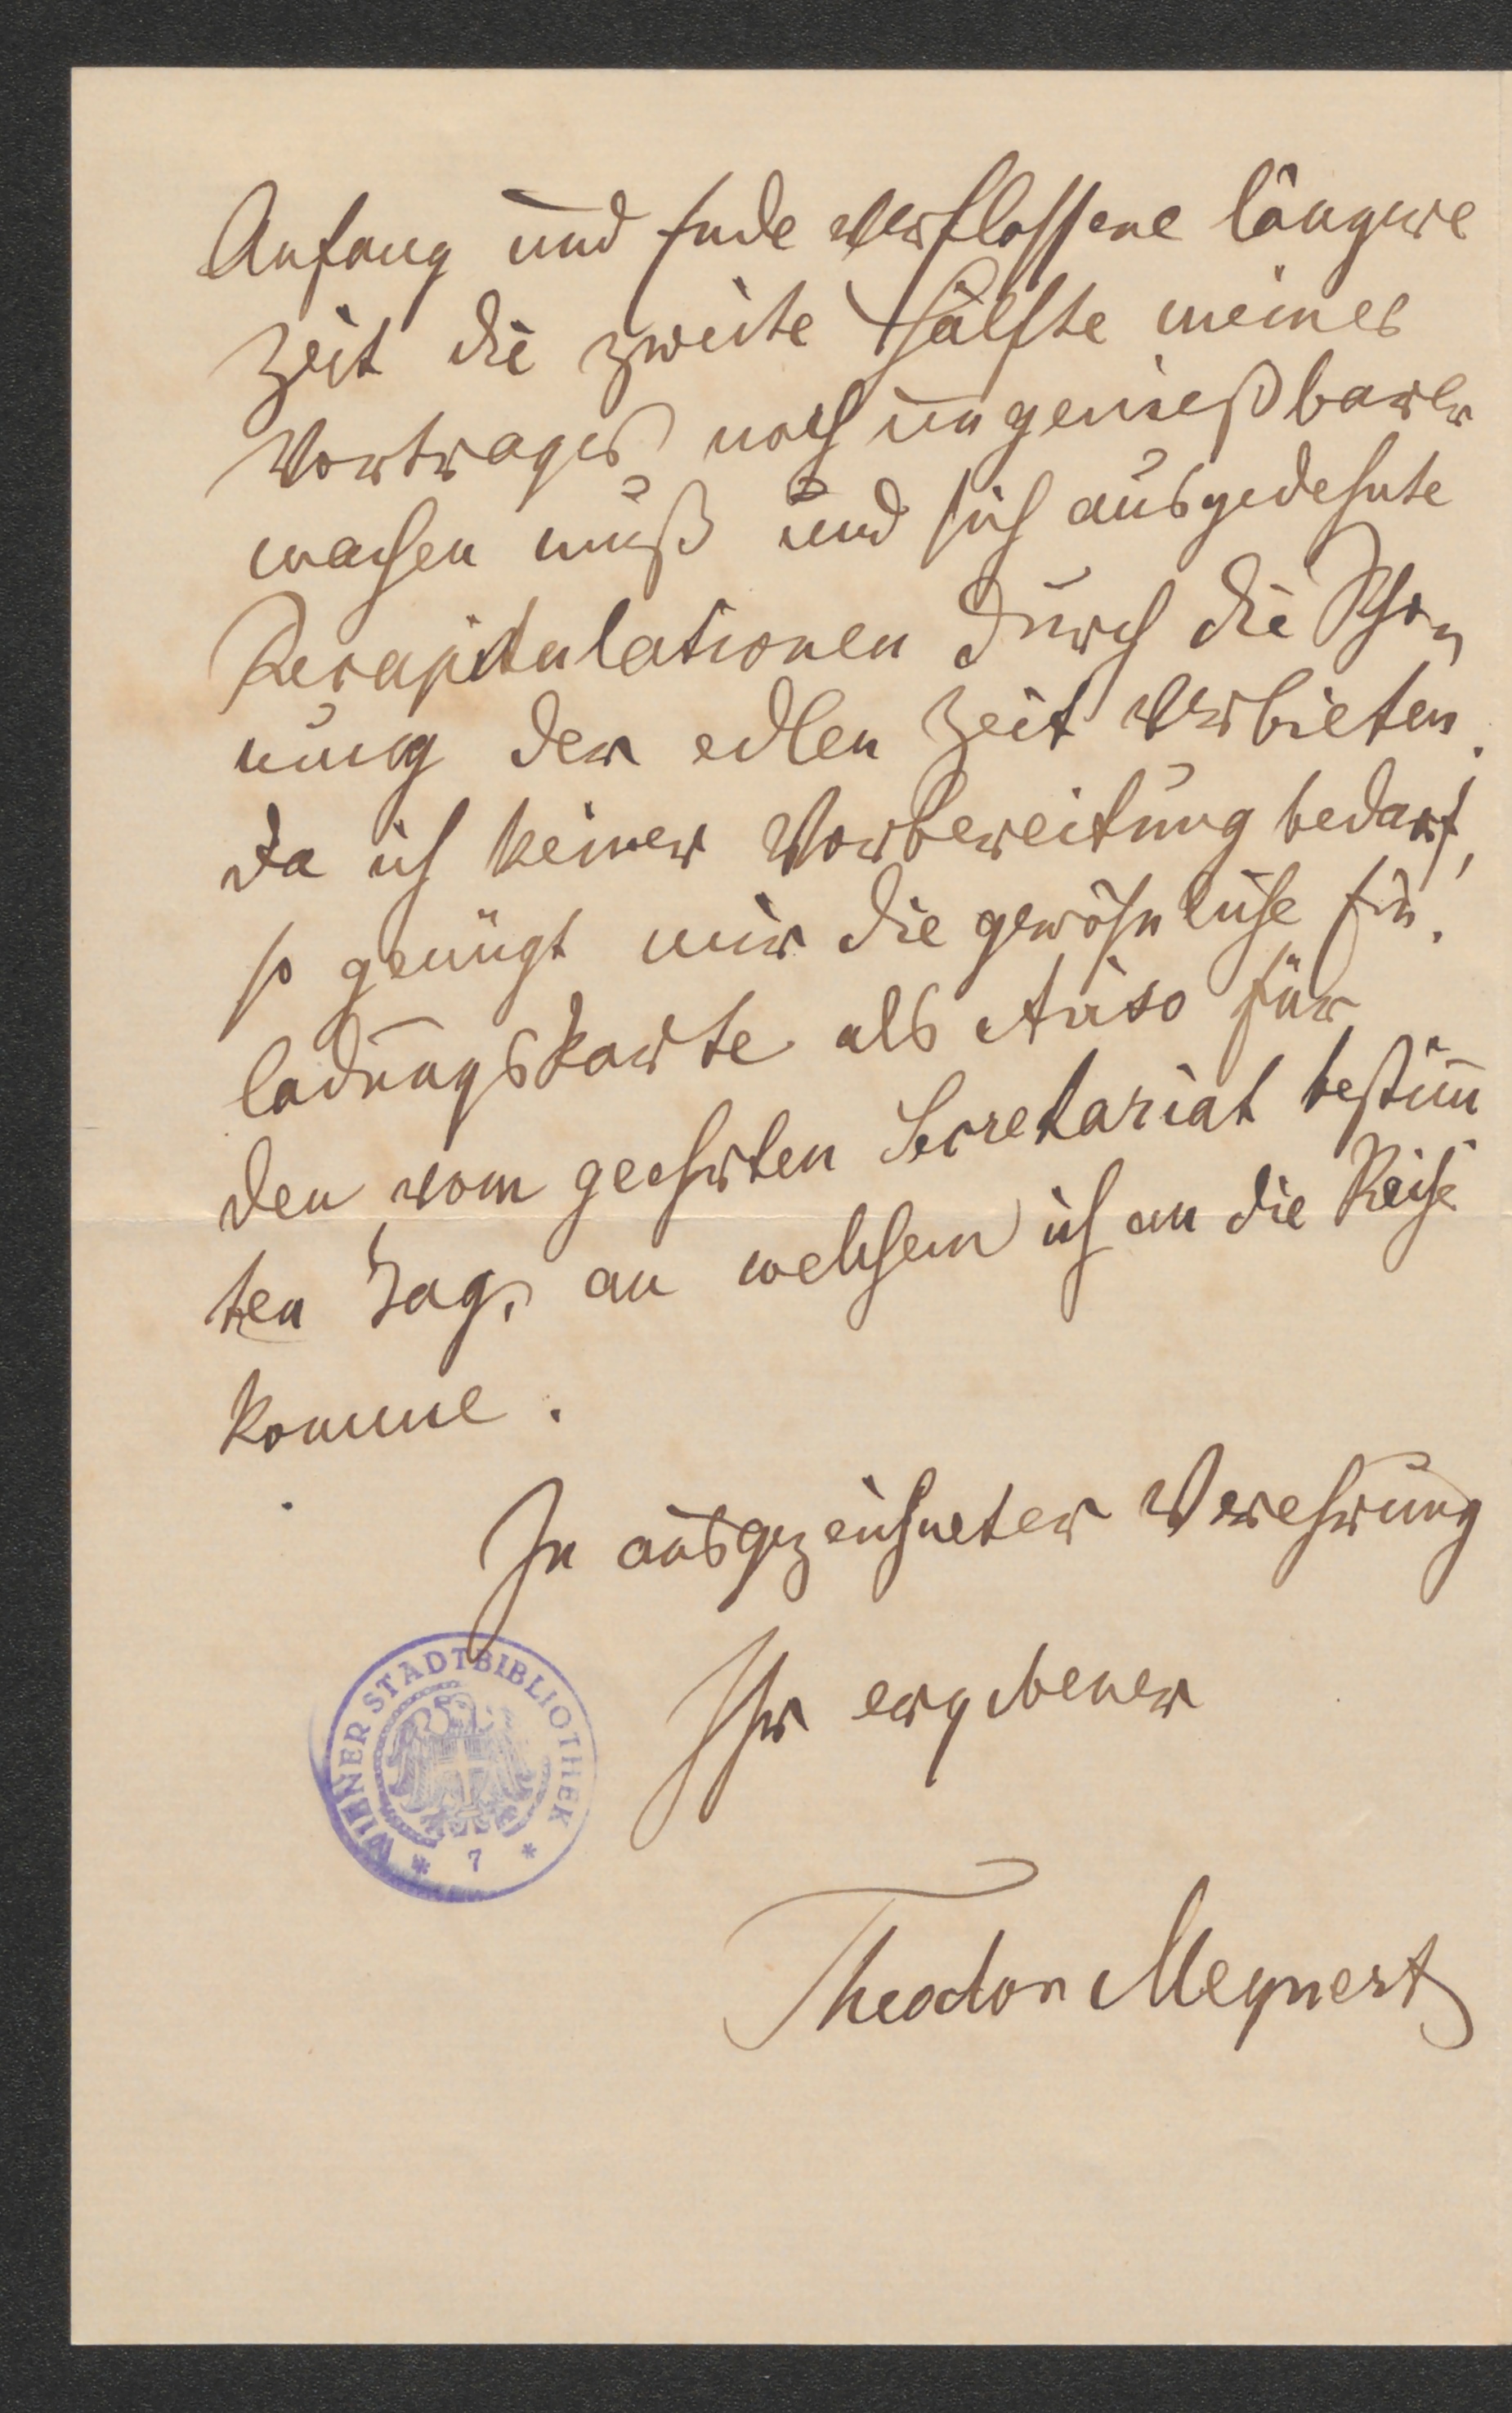 Anfang und Ende verflossene längere
Zeit die zweite Hälfte meines
Vortrages noch ungenießbarer
machen muß und sich ausgedehnte
Recapitulationen durch die Scho-
nung der edlen Zeit verbieten.
Da ich keiner Vorbereitung bedarf,
so genügt mir die gewöhnliche Ein-
ladungskarte als Aviso für
den vom geehrten Secretariat bestim̅
ten Tag, an welchem ich an die Reihe
komme.
In ausgezeichneter Verehrung
Ihr ergebener
WIENER STADTBIBLIOTHEK
* 7 *
Theodor Meynert